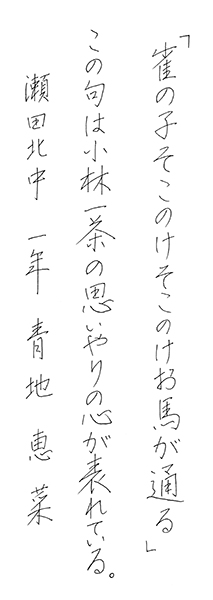 「雀の子そこのけそこのけお馬が通る」
この句は小林一茶の思いやりの心が表れている。
瀬田北中 一年 青地 恵菜